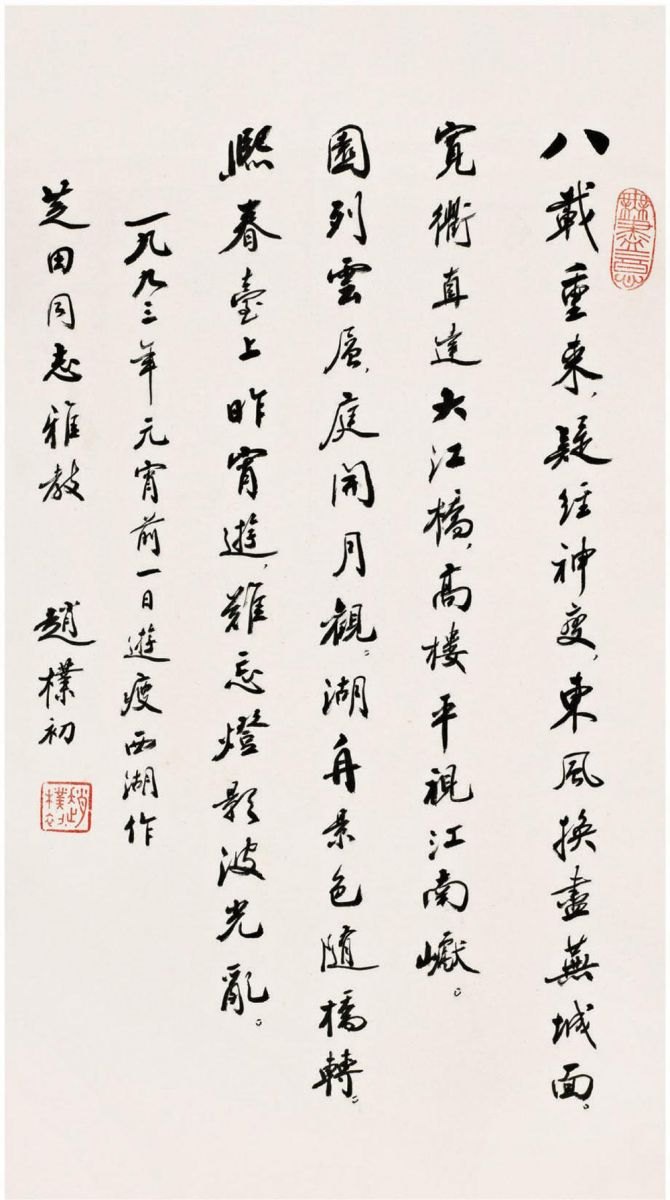 八載重來，疑經神變，東風換盡蕪城面。
寬衢直達大江橋，高樓平視江南巘。
園列雲屏，庭開月觀。湖舟景色隨橋轉。
熙春臺上昨宵遊，難忘燈影波光亂。
一九九三年元宵前一日遊瘦西湖作
芝田同志雅教　趙樸初
無盡意
趙樸初